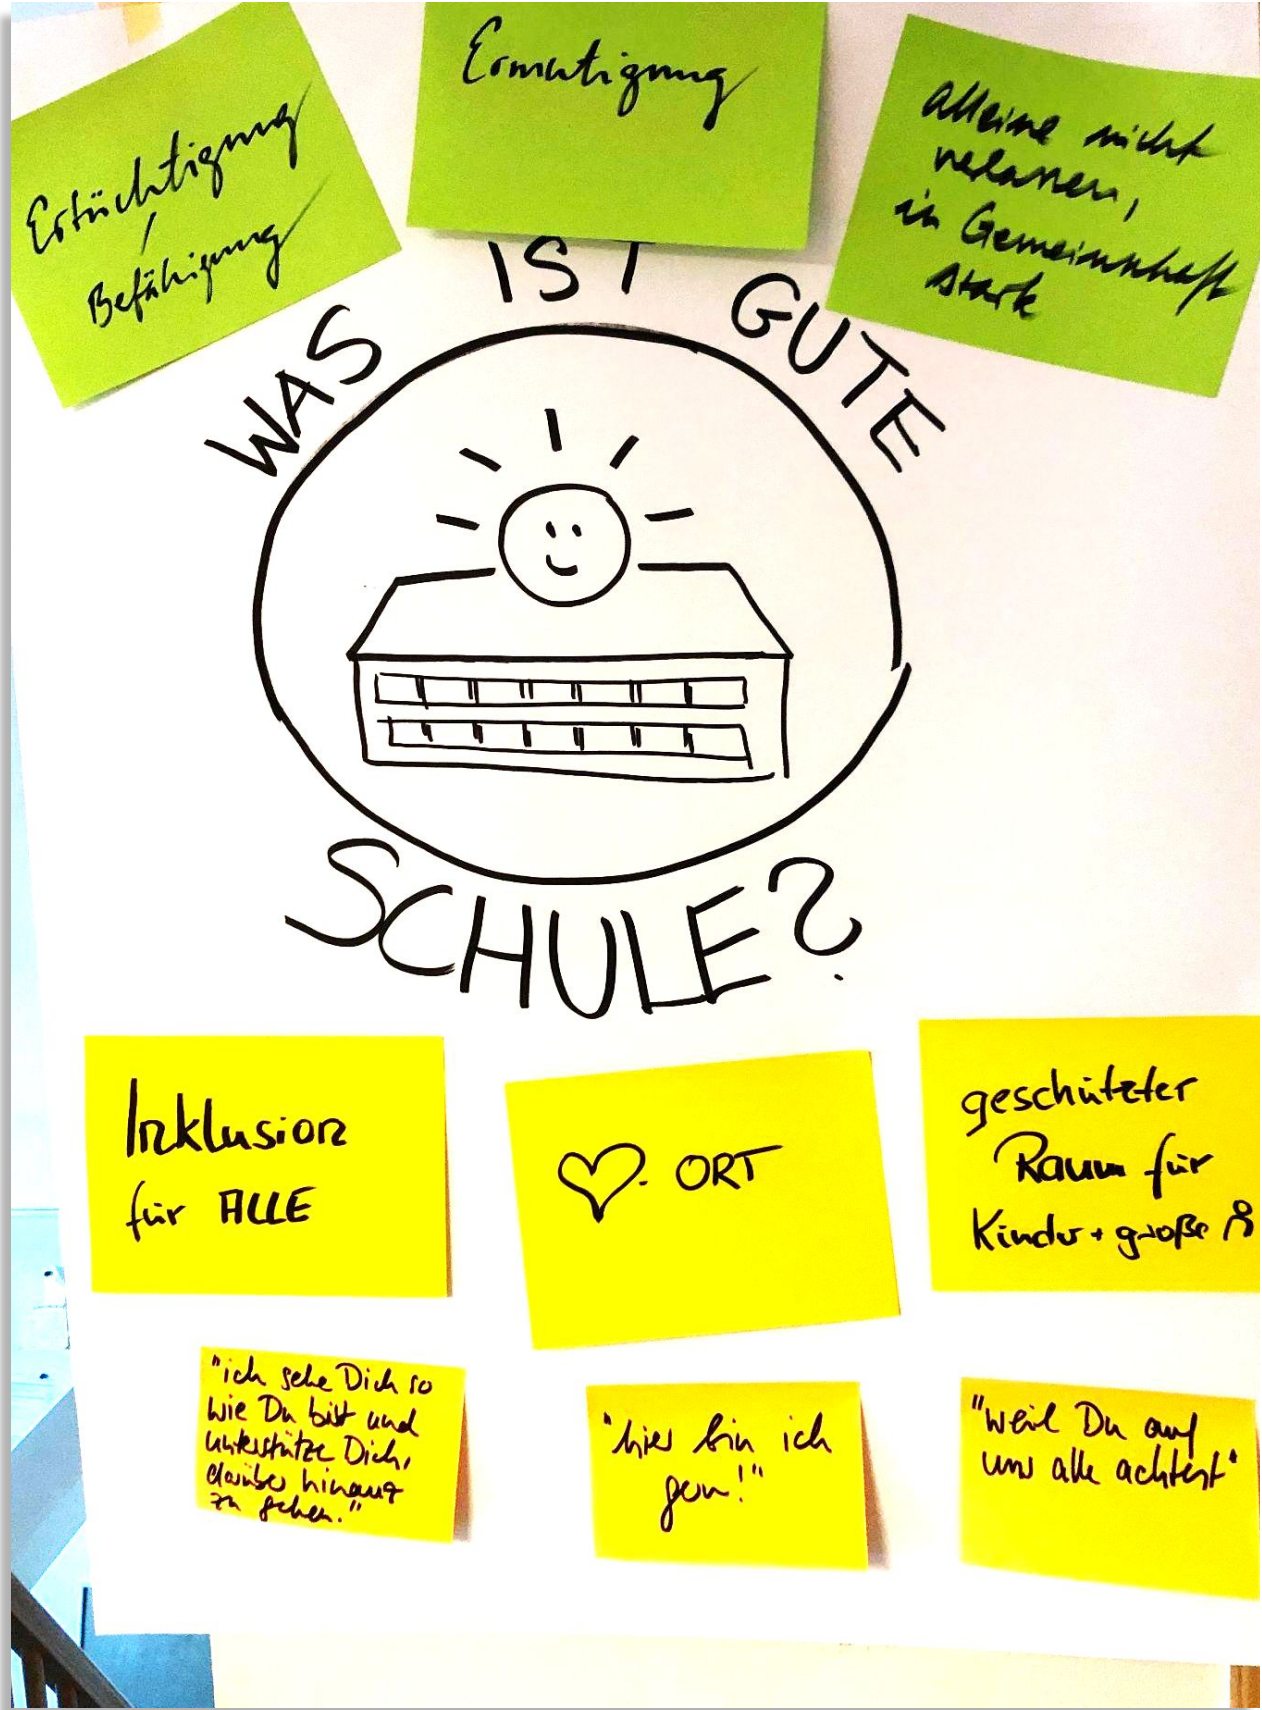 Ertüchtigung
/
Befähigung
Ermutigung
alleine nicht
verlassen,
in Gemeinschaft
stark
WAS IST GUTE
SCHULE?
Inklusion
für ALLE
♡- ORT
geschützter
Raum für
Kinder + große
"ich sehe Dich so
wie Du bist und
unterstütze Dich,
darüber hinaus
zu gehen."
"hier bin ich
gern!"
"weil Du auf
uns alle achtest"